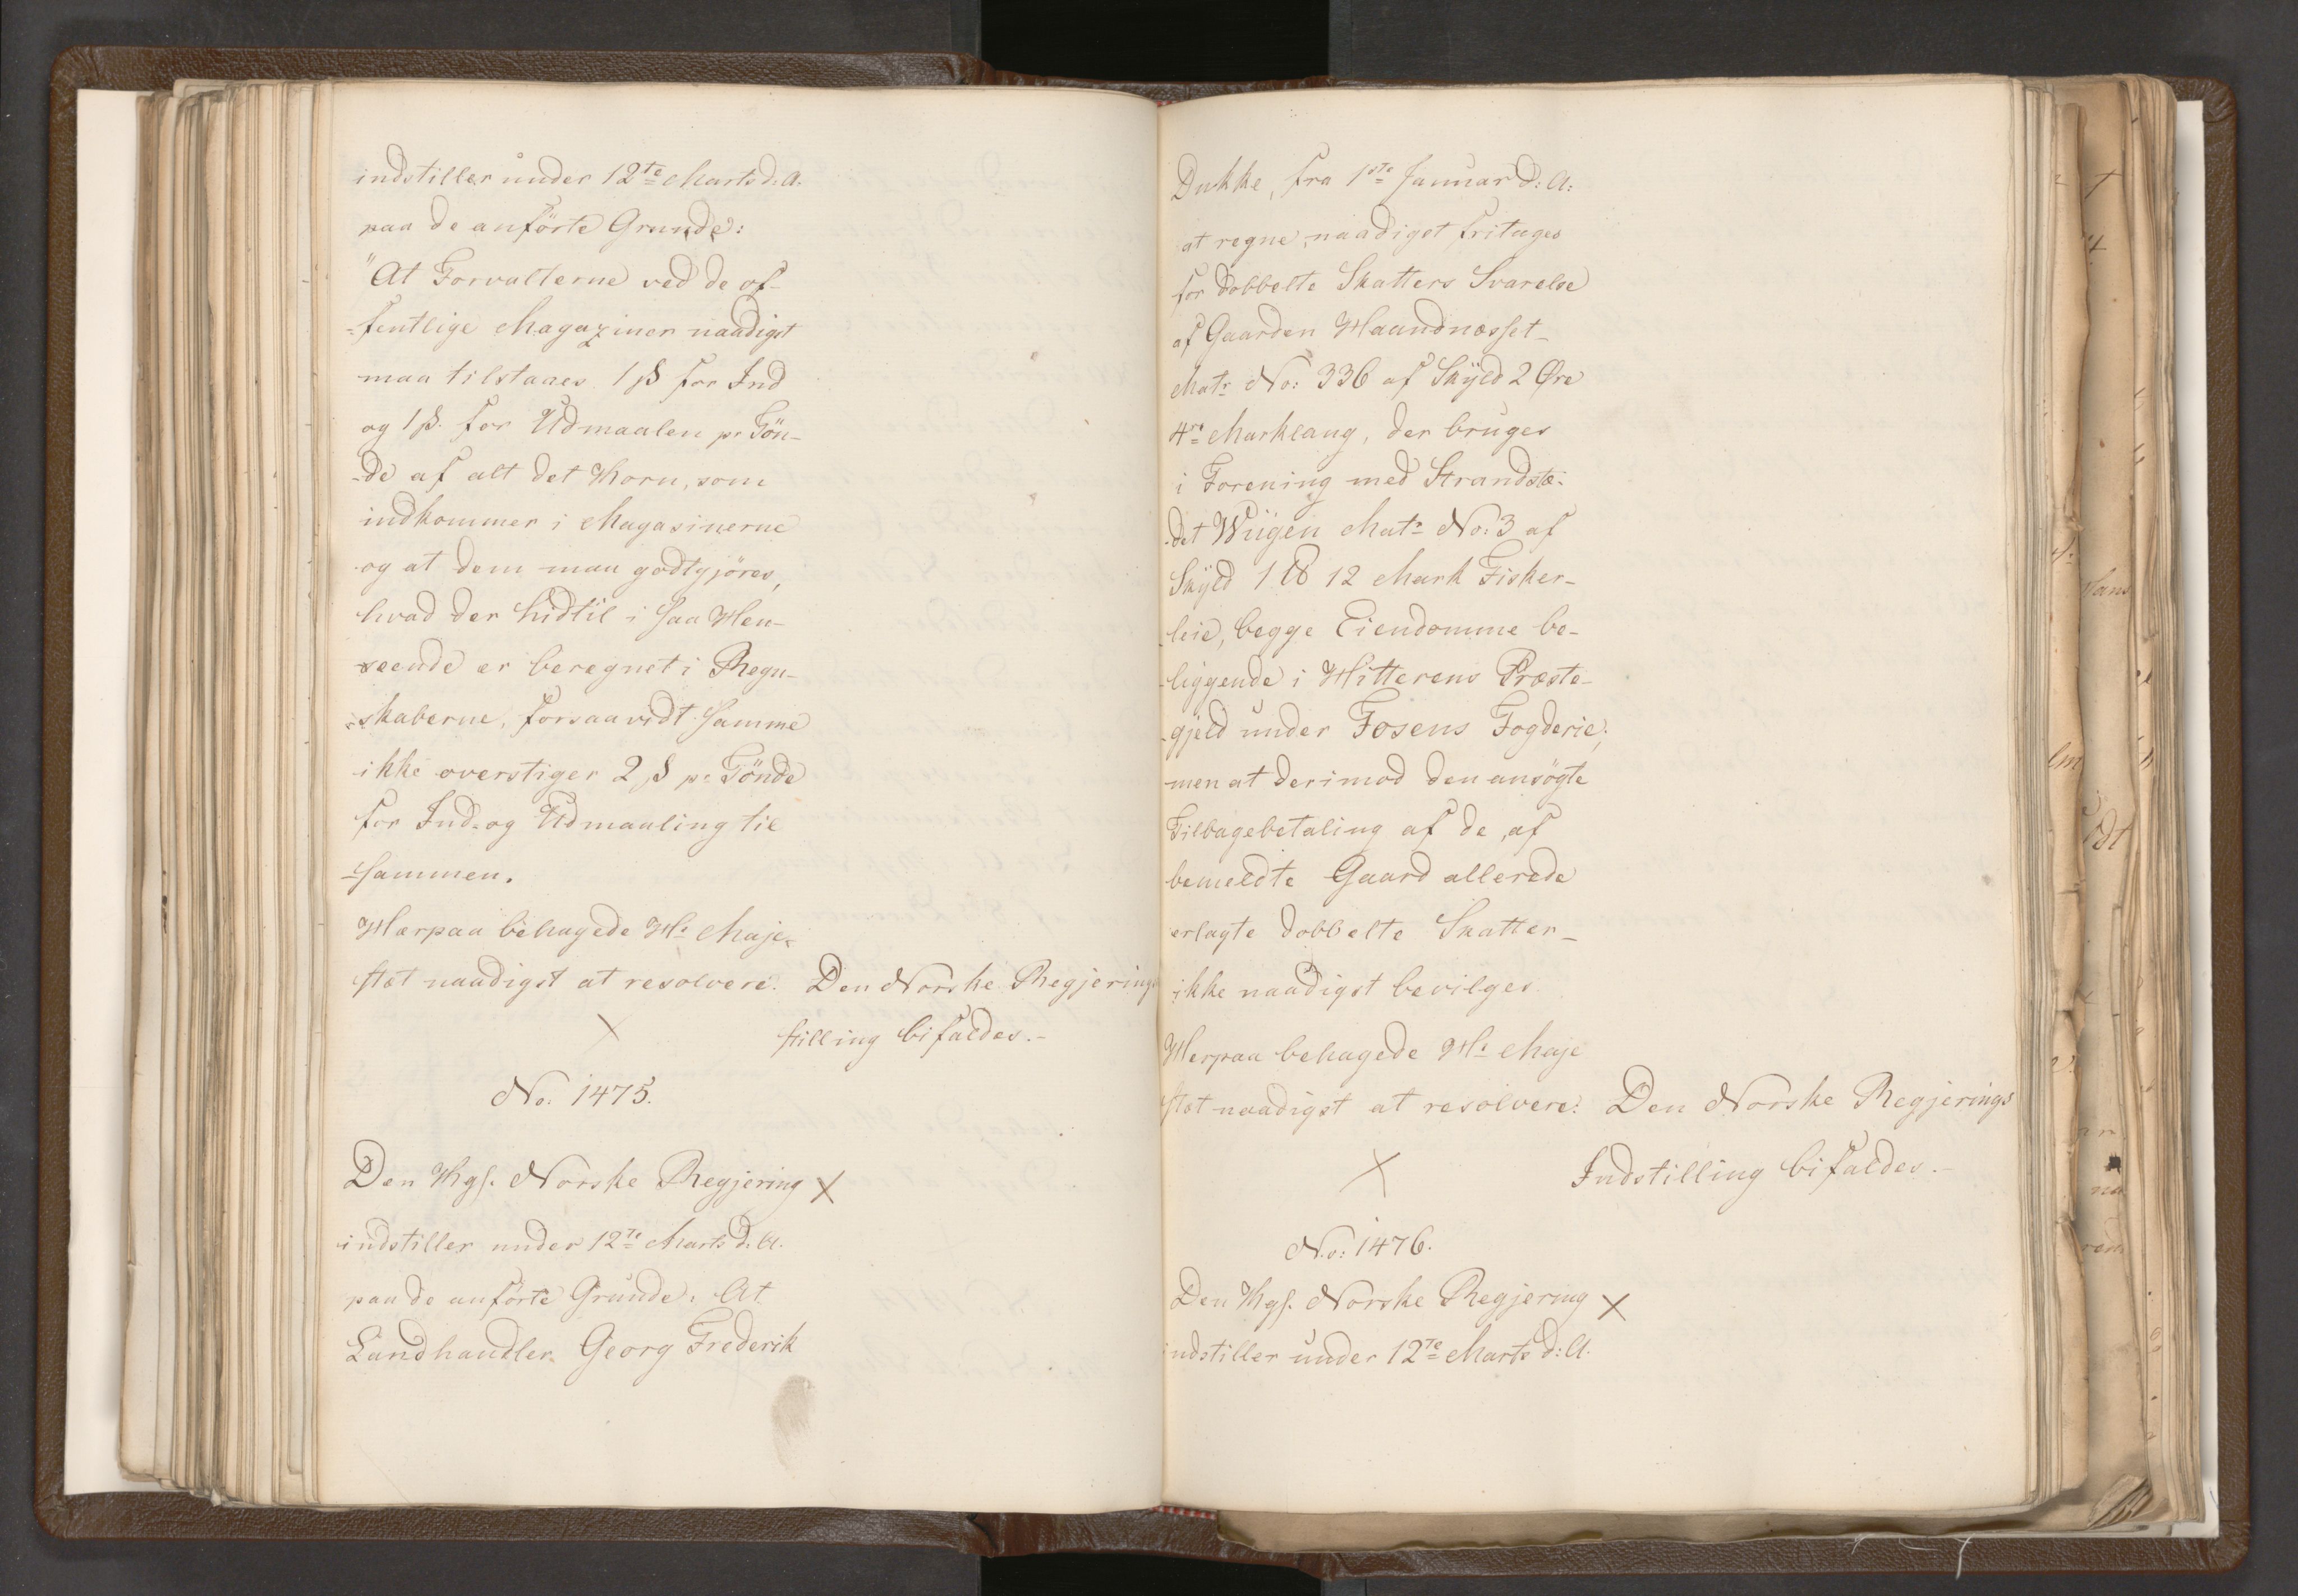 indstiller under 12te Marts d. A.
paa de anförte Grunde:
"At Forvalterne ved de of-
-fentlige Magaziner naadigst
maa tilstaaes 1 ß for Ind
og 1 ß. for Udmaalen pr Tön-
-de af alt det Korn, som
indkommer i Magasinerne
og at dem maa godtgjöres,
hvad der hidtil i saa Hen-
seende er beregnet i Regn-
-skaberne, forsaavidt samme
ikke overstiger 2 ß pr Tönde
for Ind- og Udmaaling til
-sammen.
Herpaa behagede Hs Maje-
stæt naadigst at resolvere: Den Norske Regjerings
stilling bifaldes.-
No: 1475.
Den Kgs. Norske Regjering
indstiller under 12te Marts d. A.
paa de anförte Grunde: At
Landhandler Georg Frederik
Dukke, fra 1ste Januar d: A:
at regne, naadigst fritages
for dobbelte Skatters Svarelse
af Gaarden Haandnæsset-
Matr No: 336 af Skyld 2 Øre
4re Marklaug, der bruges
i Forening med Strandstæ-
det Wiigen Matr No: 3 af
Skyld 1 ℔ 12 Mark Fisker-
leie, begge Eiendomme be-
-liggende i Hitterens Præste-
-gjeld under Fosens Fogderie;
men at derimod den ansögte
Tilbagebetaling af de, af
bemeldte Gaard allerede
erlagte dobbelte Skatter-
ikke naadigst bevilges
Herpaa behagede Hs Maje
stæt naadigst at resolvere: Den Norske Regjerings
Indstilling bifaldes.-
No: 1476.
Den Kgs. Norske Regjering
indstiller under 12te Marts d: A.